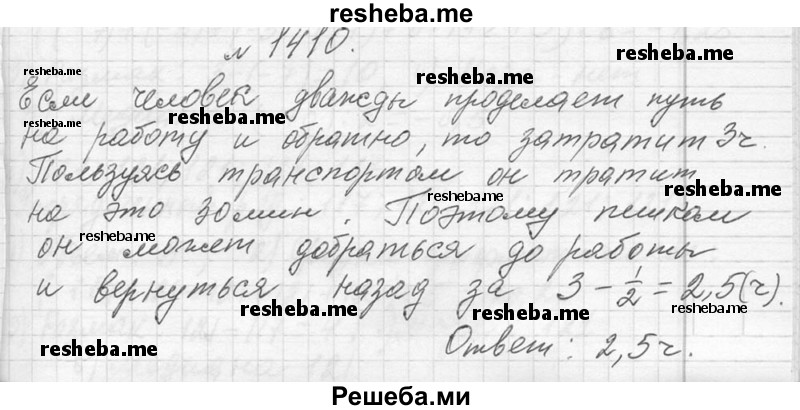 resheba.me
№ 1410.
resheba.me resheba.me
Если человек дважды проделает путь
resheba.me resheba.me
на работу и обратно, то затратит 3ч.
Пользуясь транспортом он тратит
resheba.me resheba.me
на это 30мин. Поэтому пешком
resheba.me
он может добраться до работы
и вернуться назад за 3 - 1/2 = 2,5(ч).
resheba.me resheba.me resheba.me
Ответ: 2,5ч.
resheba.me resheba.me
Решеба.ми